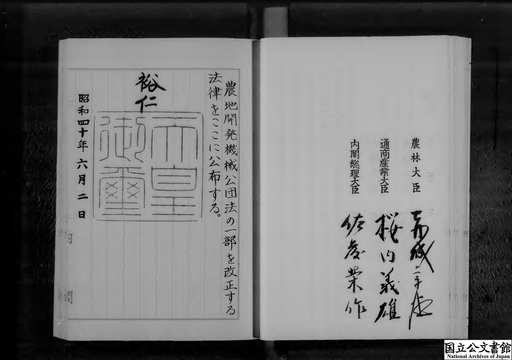 農地開発機械公団法の一部を改正する
法律をここに公布する。
裕仁
天皇
御璽
昭和四十年六月二日
農林大臣 赤城宗徳
通商産業大臣 桜内義雄
内閣総理大臣 佐藤栄作
国立公文書館
National Archives of Japan